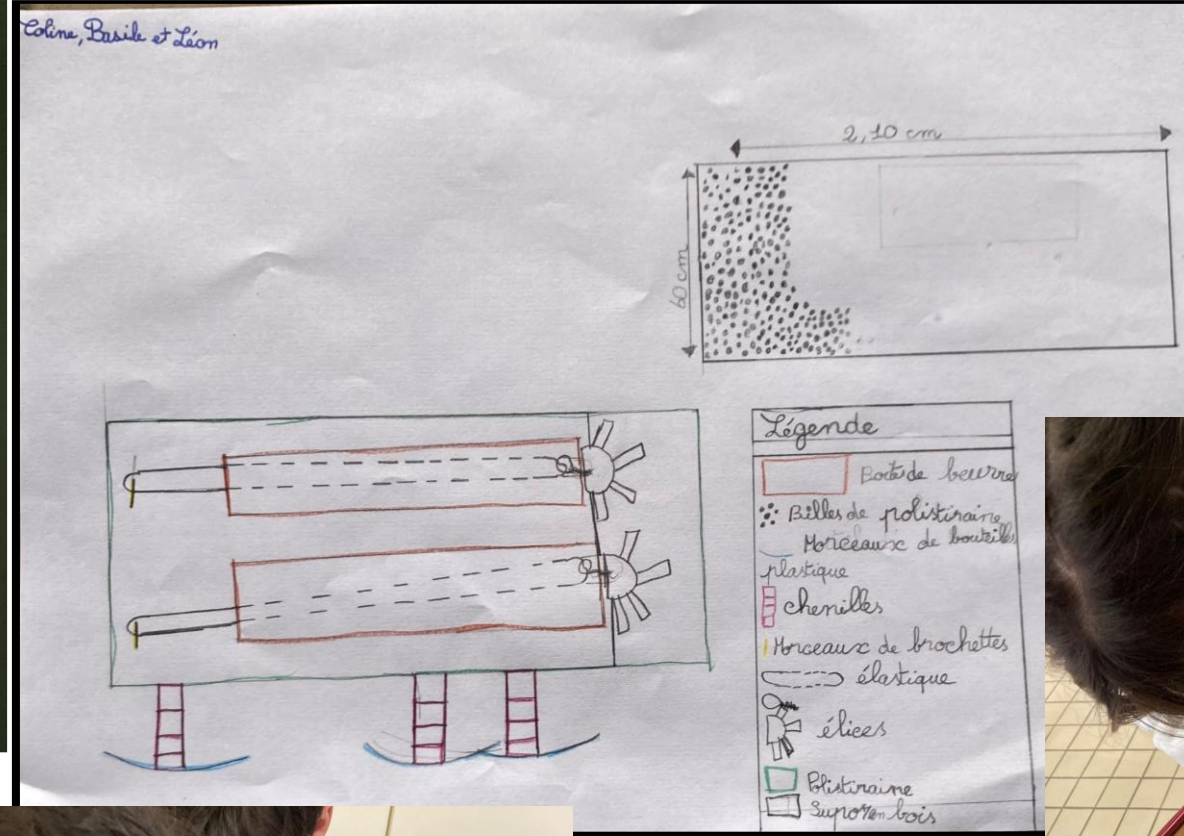 Coline, Basile et Léon
2,10 cm
60 cm
Légende
Boite de beurre
Billes de polistiraine
Morceaux de bouteille
plastique
chenilles
Morceaux de brochettes
élastique
élices
Polistiraine
Suport en bois